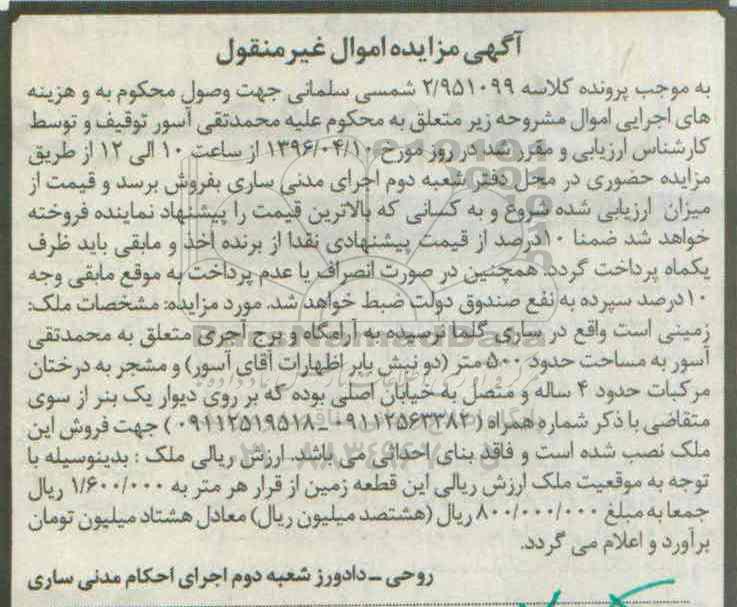 آگهی مزایده اموال غیر منقول
به موجب پرونده کلاسه ۲/۹۵۱۰۹۹ شمسی سلمانی جهت وصول محکوم به و هزینه
های اجرایی اموال مشروحه زیر متعلق به محکوم علیه محمدتقی آسور توقیف و توسط
کارشناس ارزیابی و مقرر شد در روز مورخ ۱۳۹۶/۰۴/۱۰ از ساعت ۱۰ الی ۱۲ از طریق
مزایده حضوری در محل دفتر شعبه دوم اجرای مدنی ساری بفروش برسد و قیمت از
میزان ارزیابی شده شروع و به کسانی که بالاترین قیمت را پیشنهاد نماینده فروخته
خواهد شد ضمنا ۱۰درصد از قیمت پیشنهادی نقدا از برنده اخذ و مابقی باید ظرف
یکماه پرداخت گردد. همچنین در صورت انصراف یا عدم پرداخت به موقع مابقی وجه
۱۰درصد سپرده به نفع صندوق دولت ضبط خواهد شد. مورد مزایده: مشخصات ملک:
زمینی است واقع در ساری گلما نرسیده به آرامگاه و برج آجری متعلق به محمدتقی
آسور به مساحت حدود ۵۰۰ متر (دو نبش بابر اظهارات آقای آسور) و مشجر به درختان
مرکبات حدود ۴ ساله و متصل به خیابان اصلی بوده که بر روی دیوار یک بنر از سوی
متقاضی با ذکر شماره همراه (۰۹۱۱۲۵۶۳۳۸۲ ـ ۰۹۱۱۲۵۱۹۵۱۸) جهت فروش این
ملک نصب شده است و فاقد بنای احداثی می باشد. ارزش ریالی ملک : بدینوسیله با
توجه به موقعیت ملک ارزش ریالی این قطعه زمین از قرار هر متر به ۱/۶۰۰/۰۰۰ ریال
جمعا به مبلغ ۸۰۰/۰۰۰/۰۰۰ ریال (هشتصد میلیون ریال) معادل هشتاد میلیون تومان
برآورد و اعلام می گردد.
روحی ـ دادورز شعبه دوم اجرای احکام مدنی ساری